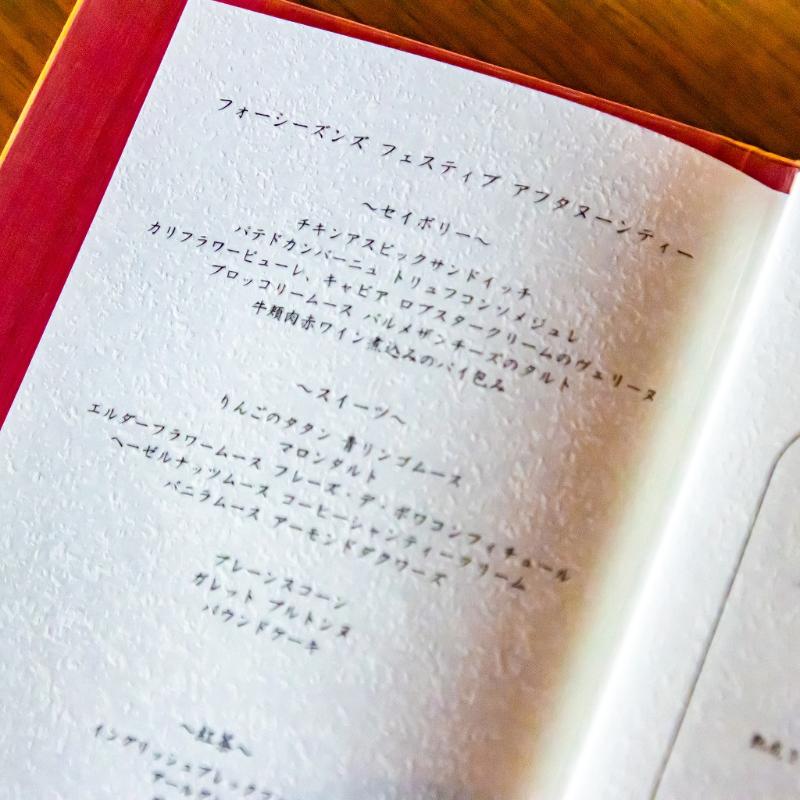 フォーシーズンズ フェスティブ アフタヌーンティー
～セイボリー～
チキンアスピックサンドイッチ
パテドカンパーニュ トリュフコンソメジュレ
カリフラワーピューレ、キャビア ロブスタークリームのヴェリーヌ
ブロッコリームース パルメザンチーズのタルト
牛頬肉赤ワイン煮込みのパイ包み
～スイーツ～
りんごのタタン 青リンゴムース
マロンタルト
エルダーフラワームース フレーズ・デ・ボワコンフィチュール
ヘーゼルナッツムース コーヒーシャンティークリーム
バニラムース アーモンドダクワーズ
プレーンスコーン
ガレット ブルトンヌ
パウンドケーキ
～紅茶～
イングリッシュブレックファ
アールグレ